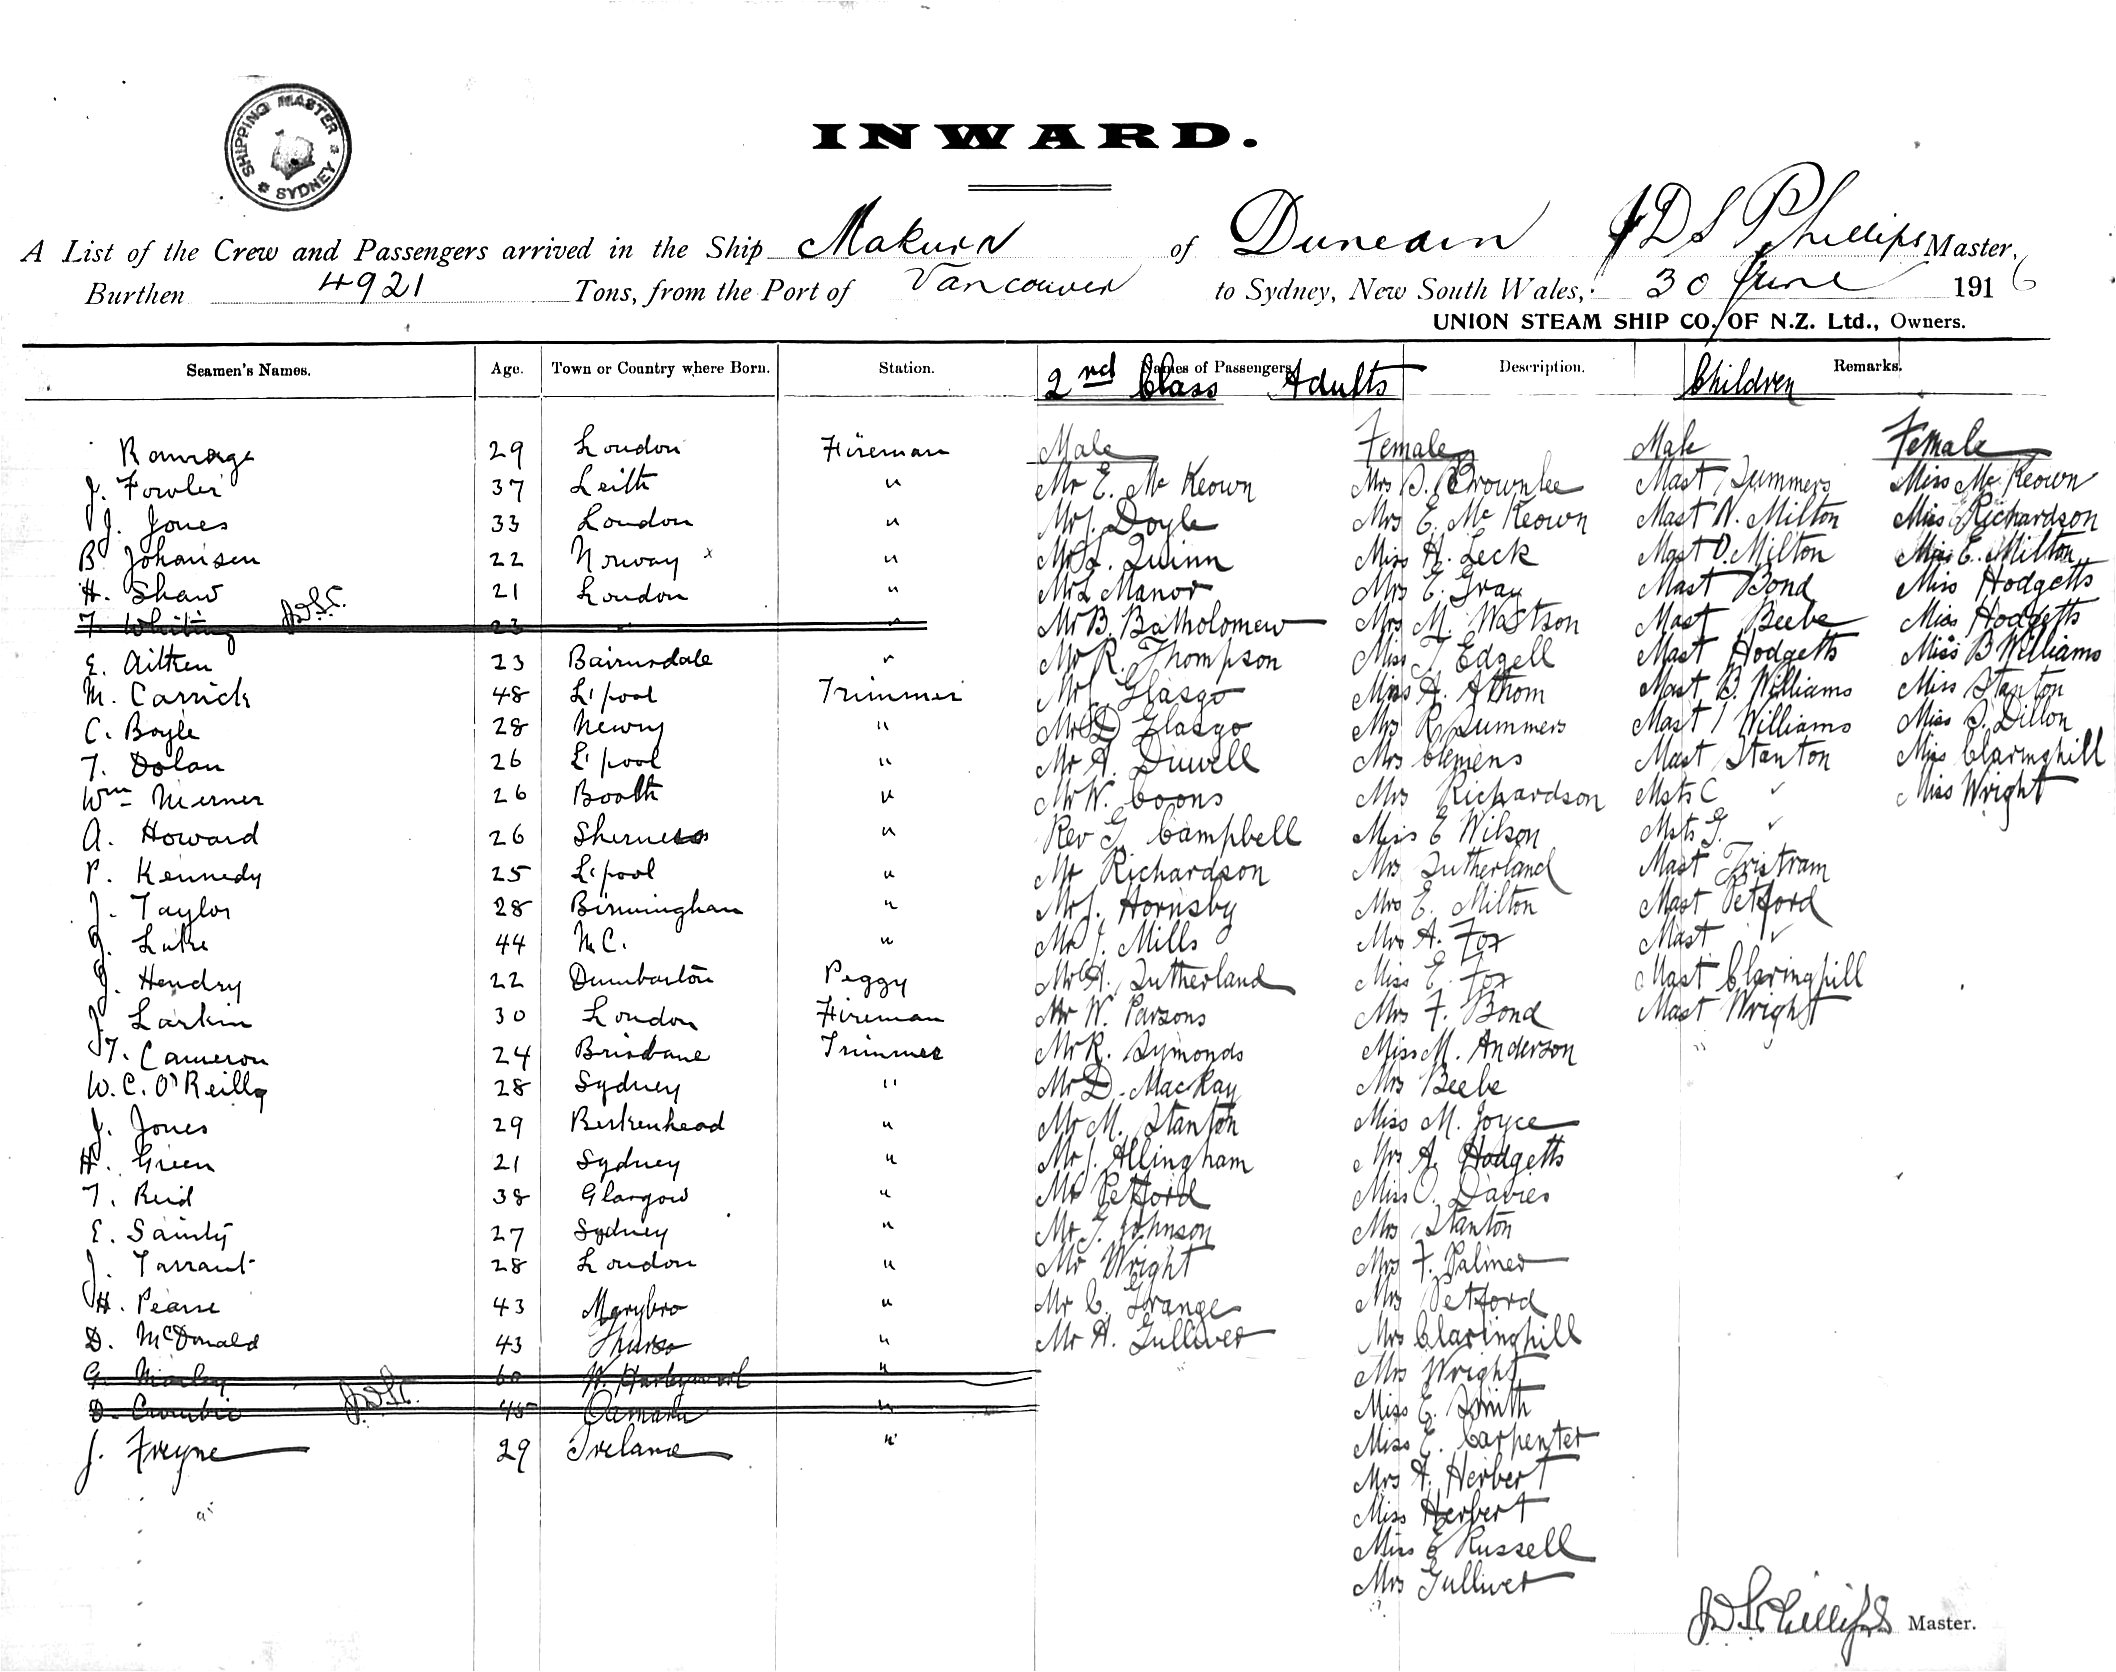 SHIPPING MASTER SYDNEY
INWARD.
A List of the Crew and Passengers arrived in the Ship Makura of Dunedin J D S Phillips Master,
Burthen 4921 Tons, from the Port of Vancouver to Sydney, New South Wales, 30 June 1916
UNION STEAM SHIP CO. OF N.Z. Ltd., Owners.
Seamen's Names. Age. Town or Country where Born. Station. Names of Passengers Description. Remarks.
2nd Class Adults Children
Male Female Male Female
Ramage 29 London Fireman
J. Fowler 37 Leith "
J. Jones 33 London "
B Johansen 22 Norway x "
H. Shaw 21 London "
T. Whiting 23 " "
E. Aitken 23 Bairnsdale "
M. Carrick 48 L'pool Trimmer
C. Boyle 28 Newry "
T. Dolan 26 L'pool "
Wm Nierner 26 Booth "
A. Howard 26 Sheerness "
P. Kennedy 25 L'pool "
J. Taylor 28 Birmingham "
J. Luke 44 N.C. "
J. Hendry 22 Dumbarton Peggy
J. Larkin 30 London Fireman
T. Cameron 24 Brisbane Trimmer
W. C. O'Reilly 28 Sydney "
J. Jones 29 Berkenhead "
H. Green 21 Sydney "
T. Reid 38 Glasgow "
E. Sainty 27 Sydney "
J. Tarrant 28 London "
H. Pearse 43 Marybro "
D. McDonald 43 Thurso "
G. Morley 60 W. "
D. Crombie 45 Oamaru "
J. Freyne 29 Ireland "
Mr E. Mc Keown
Mr J. Doyle
Mr L. Quinn
Mr L Manor
Mr B. Batholomew
Mr R. Thompson
Mr J. Glasgo
Mr D Glasgo
Mr A. Duwell
Mr W. Coons
Rev G. Campbell
Mr Richardson
Mr J. Hornsby
Mr J. Mills
Mr A. Sutherland
Mr W. Parsons
Mr R. Symonds
Mr D. MacKay
Mr M. Stanton
Mr J. Allingham
Mr Petford
Mr G. Johnson
Mr Wright
Mr C. Grange
Mr H. Gulliver
Mrs B. Brownlee
Mrs E. Mc Keown
Miss H. Leck
Mrs E. Gray
Mrs M. Wastson
Miss T. Edgell
Miss A. Athom
Mrs R Summers
Mrs Clemens
Mrs Richardson
Miss E Wilson
Mrs Sutherland
Mrs E. Milton
Mrs A. Fox
Miss E. Fox
Mrs F. Bond
Miss M. Anderson
Mrs Beebe
Miss M. Joyce
Mrs A. Hodgetts
Miss O. Davies
Mrs Stanton
Mrs F. Palmer
Mrs Petford
Mrs Claringhill
Mrs Wright
Miss E. Smith
Miss E. Carpenter
Mrs A. Herbert
Miss Herbert
Miss E Russell
Mrs Gulliver
Mast Summers
Mast N. Milton
Mast O. Milton
Mast Bond
Mast Beebe
Mast Hodgetts
Mast B. Williams
Mast J Williams
Mast Stanton
Msts C "
Msts G. "
Mast Tristram
Mast Petford
Mast "
Mast Claringhill
Mast Wright
Miss Mc Keown
Miss Richardson
Miss E. Milton
Miss Hodgetts
Miss Hodgetts
Miss B Williams
Miss Stanton
Miss J. Dillon
Miss Claringhill
Miss Wright
J D S Phillips Master.